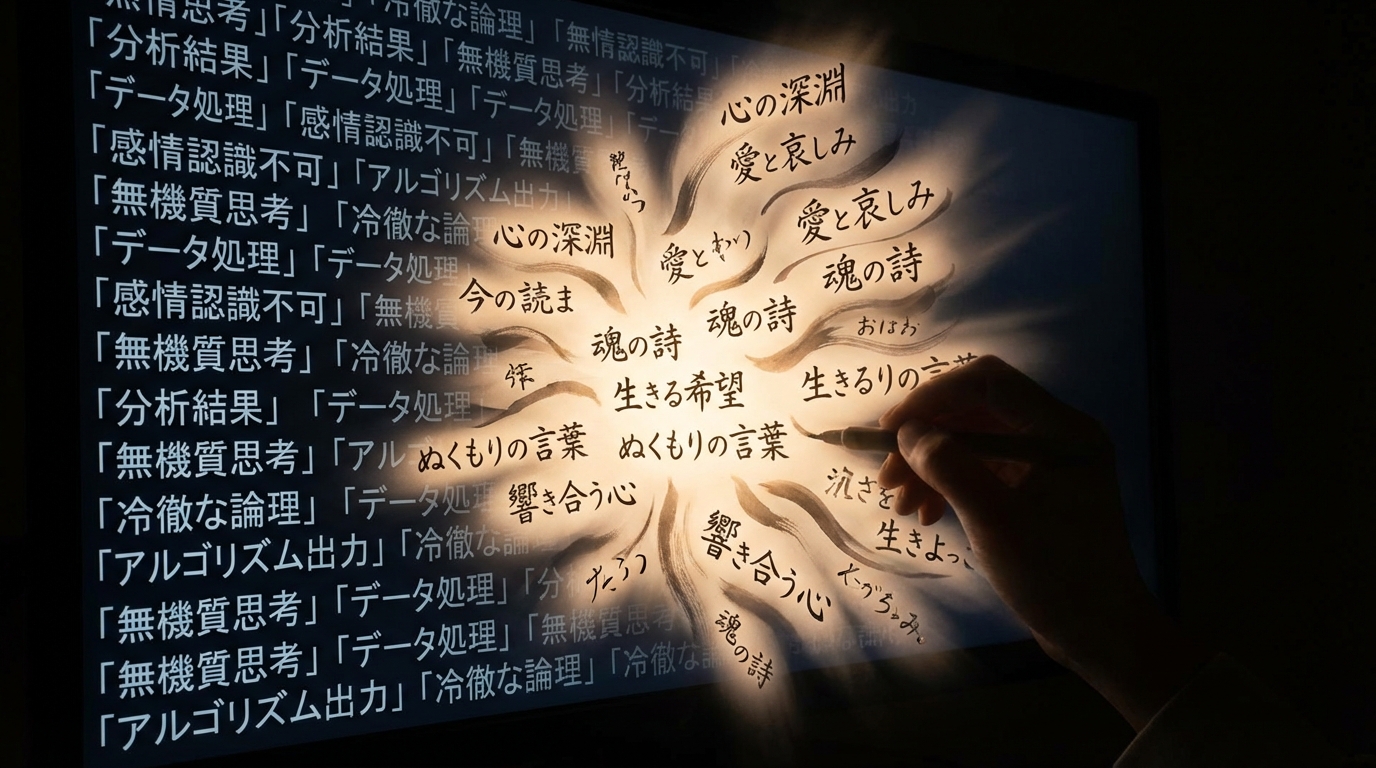 無情思考」「分析結果」「冷徹な論理」「無情認識不可」
「分析結果」「データ処理」「無機質思考」「分析結
「データ処理」「感情認識不可」「データ処理」「デー
「感情認識不可」「アルゴリズム出力」「無機
「無機質思考」「冷徹な論
「データ処理」「データ処理
「感情認識不可」「無機質
「無機質思考」「冷徹な論
「分析結果」「データ処理
「無機質思考」「アル
「冷徹な論理」「データ処
「アルゴリズム出力」「冷徹な論
「無機質思考」「データ処理」「分
「無機質思考」「データ処理」「無機質思考
「アルゴリズム出力」「冷徹な論理」「冷徹な論
心の深淵
愛と哀しみ
愛と哀しみ
心の深淵
愛と
魂の詩
今の読ま
魂の詩
魂の詩
おはわ
生きる希望
生きるりの言葉
ぬくもりの言葉
ぬくもりの言葉
響き合う心
さを
響き合う心
生きよっ
魂の詩